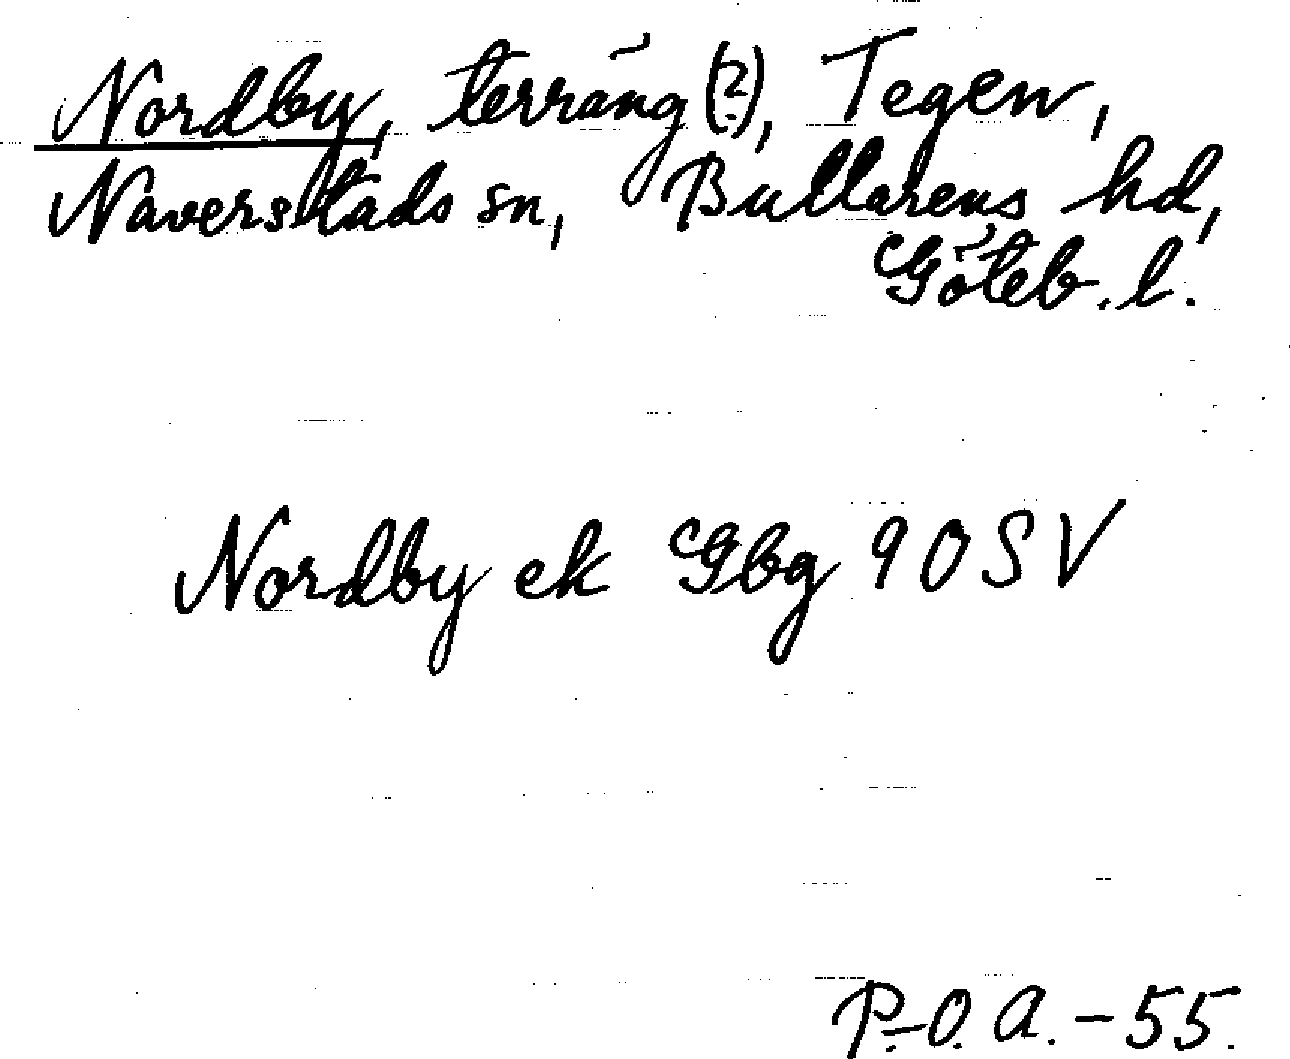 Nordby, terräng (?), Tegen,
Naverstads sn, Bullarens hd,
Göteb. l.
Nordby ek Gbg 90 SV
P.-O. A. - 55.